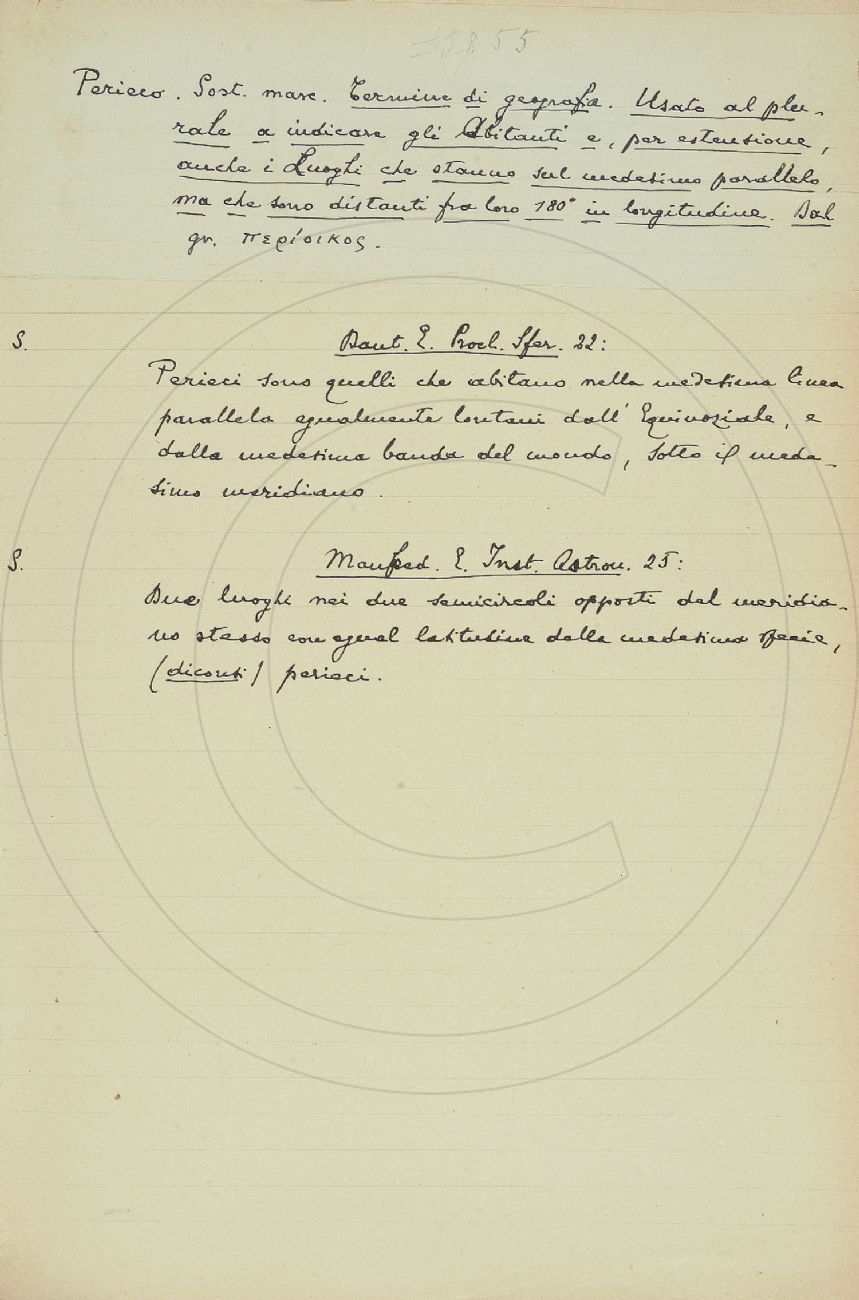 Perieco. Sost. masc. Termine di geografia. Usato al plu-
rale a indicare gli Abitanti e, per estensione,
anche i Luoghi che stanno sul medesimo parallelo,
ma che sono distanti fra loro 180° in longitudine. Dal
gr. περίοικος.
S.
Dant. E. Procl. Sfer. 22:
Perieci sono quelli che abitano nella medesima linea
parallela egualmente lontani dall' Equinoziale, e
dalla medesima banda del mondo, sotto il mede-
simo meridiano.
S.
Manfred. E. Inst. Astron. 25:
Due luoghi nei due semicircoli opposti del meridia-
no stesso con egual latitudine della medesima specie,
(diconsi) perieci.